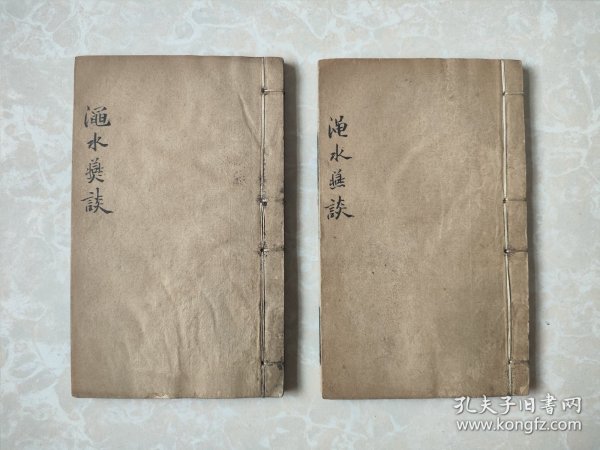 澠水燕談
渑水燕談
孔夫子旧書网
www.kongfz.com